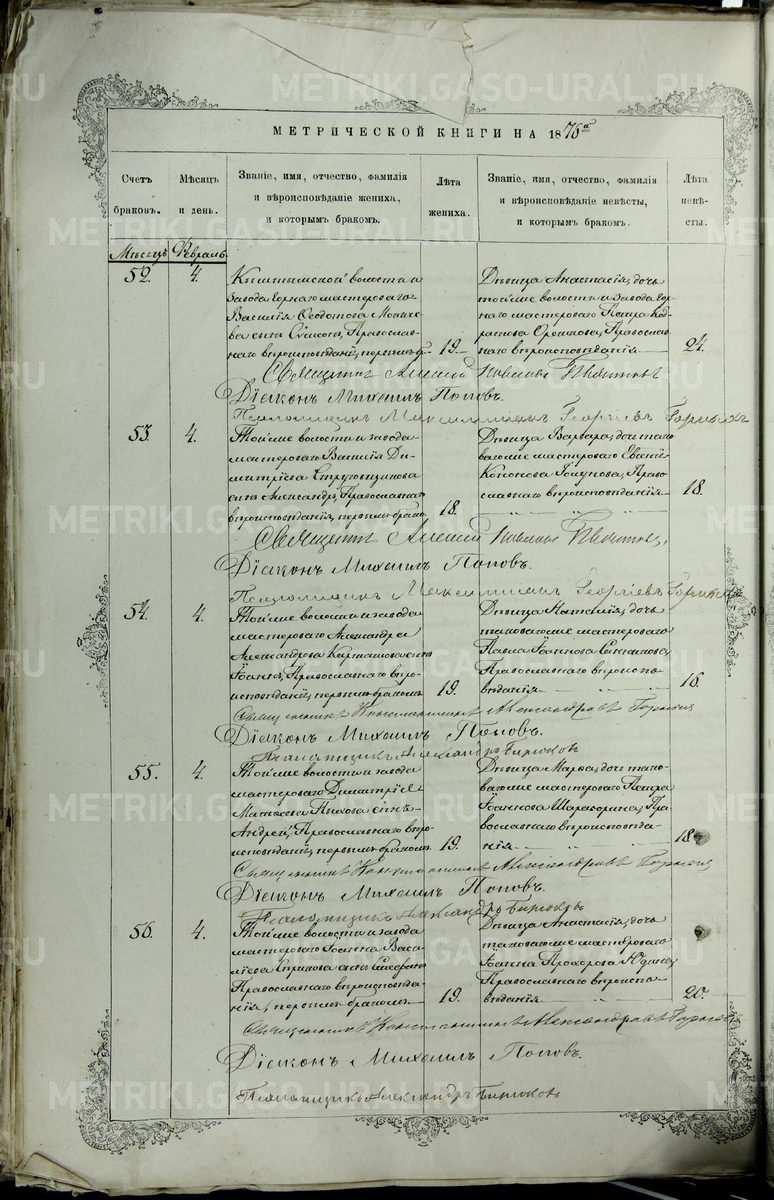 МЕТРИЧЕСКОЙ КНИГИ НА 1876й
Счетъ браковъ.
Мѣсяцъ и день.
Званіе, имя, отчество, фамилія и вѣроисповѣданіе жениха, и которымъ бракомъ.
Лѣта жениха.
Званіе, имя, отчество, фамилія и вѣроисповѣданіе невѣсты, и которымъ бракомъ.
Лѣта невѣсты.
Мѣсяцъ Февраль.
52.
4.
Кыштымской волости и
завода горнаго мастероваго
Василія Ѳеодотова
сынъ Симеонъ, Православ-
наго вѣроисповѣданія, первымъ
19
Дѣвица Анастасія, дочь
той же волости и завода гор-
наго мастероваго Петра
Православ-
наго вѣроисповѣданія
24.
Священникъ Алексій
Діаконъ Михаилъ Поповъ.
Псаломщикъ Максимиліанъ Георгіевъ
53.
4.
Той же волости и завода
мастероваго Василія Ди-
митріева
сынъ Александръ, Православнаго
вѣроисповѣданія, первымъ бракомъ
18.
Дѣвица Варвара, дочь тако-
ваго же мастероваго
Кононова Право-
славнаго вѣроисповѣданія
18.
Священникъ Алексій
Діаконъ Михаилъ Поповъ.
Псаломщикъ Максимиліанъ Георгіевъ
54.
4.
Той же волости и завода
мастероваго Александра
Александрова Карташова сынъ
Іоаннъ, Православнаго вѣро-
исповѣданія, первымъ бракомъ
19.
Дѣвица Наталія, дочь
таковаго же мастероваго
Павла Іоаннова
Православнаго вѣроиспо-
вѣданія
16.
Священникъ Константинъ Александровъ
Діаконъ Михаилъ Поповъ.
Псаломщикъ Александръ Бирюковъ
55.
4.
Той же волости и завода
мастероваго Димитрія
Матѳеева сынъ
Андрей, Православнаго вѣро-
исповѣданія, первымъ бракомъ
19.
Дѣвица Марѳа, дочь тако-
ваго же мастероваго Петра
Іоаннова Пра-
вославнаго вѣроисповѣда-
нія
18
Священникъ Константинъ Александровъ
Діаконъ Михаилъ Поповъ.
Псаломщикъ Александръ Бирюковъ
56.
4.
Той же волости и завода
мастероваго Іоанна Васи-
ліева сынъ Стефанъ
Православнаго вѣроисповѣда-
нія, первымъ бракомъ
19.
Дѣвица Анастасія, дочь
таковаго же мастероваго
Іоанна Прохорова Юдина,
Православнаго вѣроиспо-
вѣданія
20.
Священникъ Константинъ Александровъ
Діаконъ Михаилъ Поповъ.
Псаломщикъ Александръ Бирюковъ
METRIKI.GASO-URAL.RU